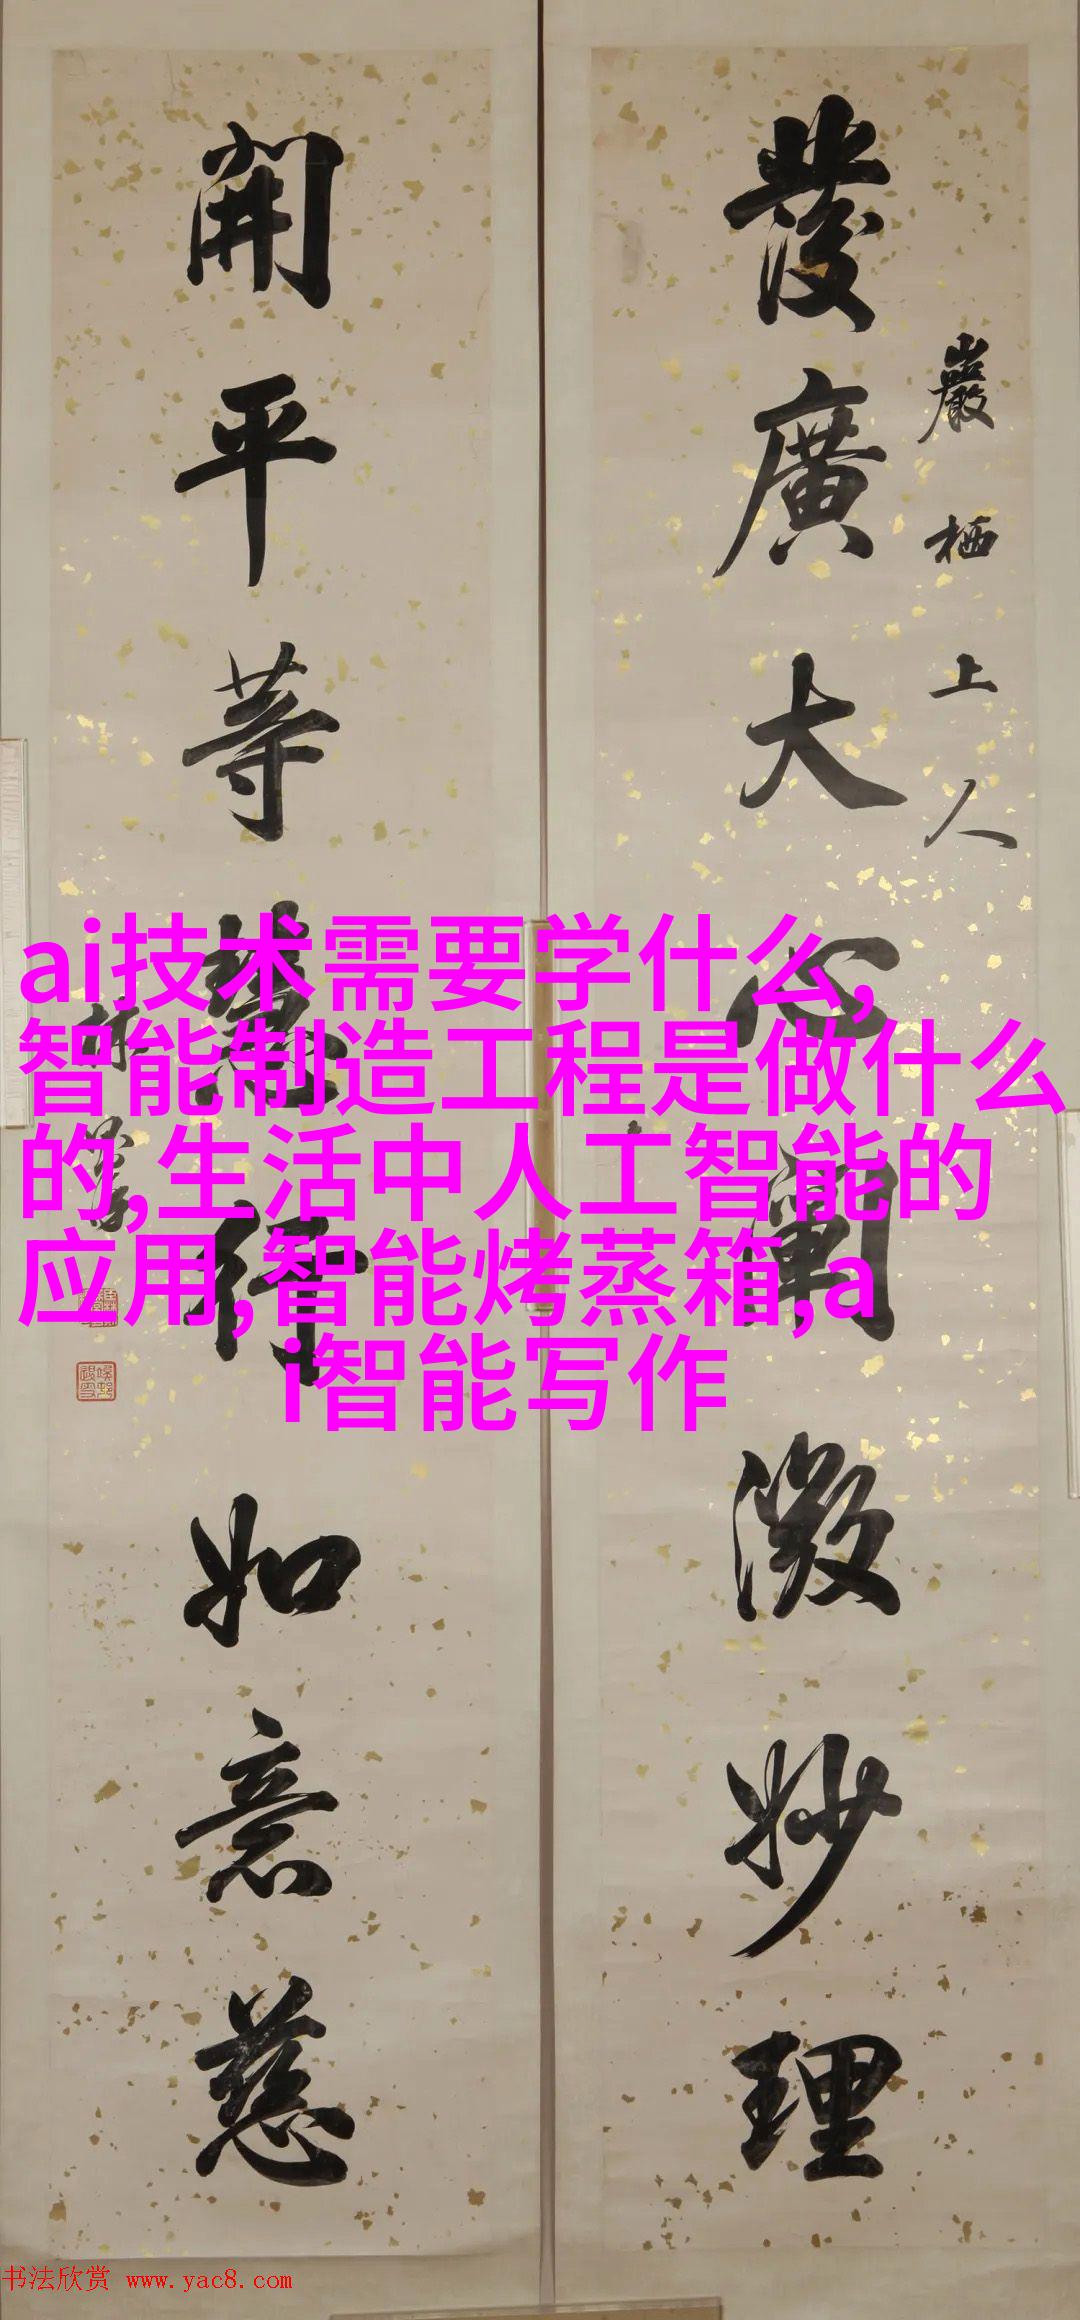 發廣大心闡微妙理
巖栖上人
開平等慧行如意慈
林
ai技术需要学什么,
智能制造工程是做什么
的,生活中人工智能的
应用,智能烤蒸箱,a
i智能写作
书法欣赏 www.yac8.com